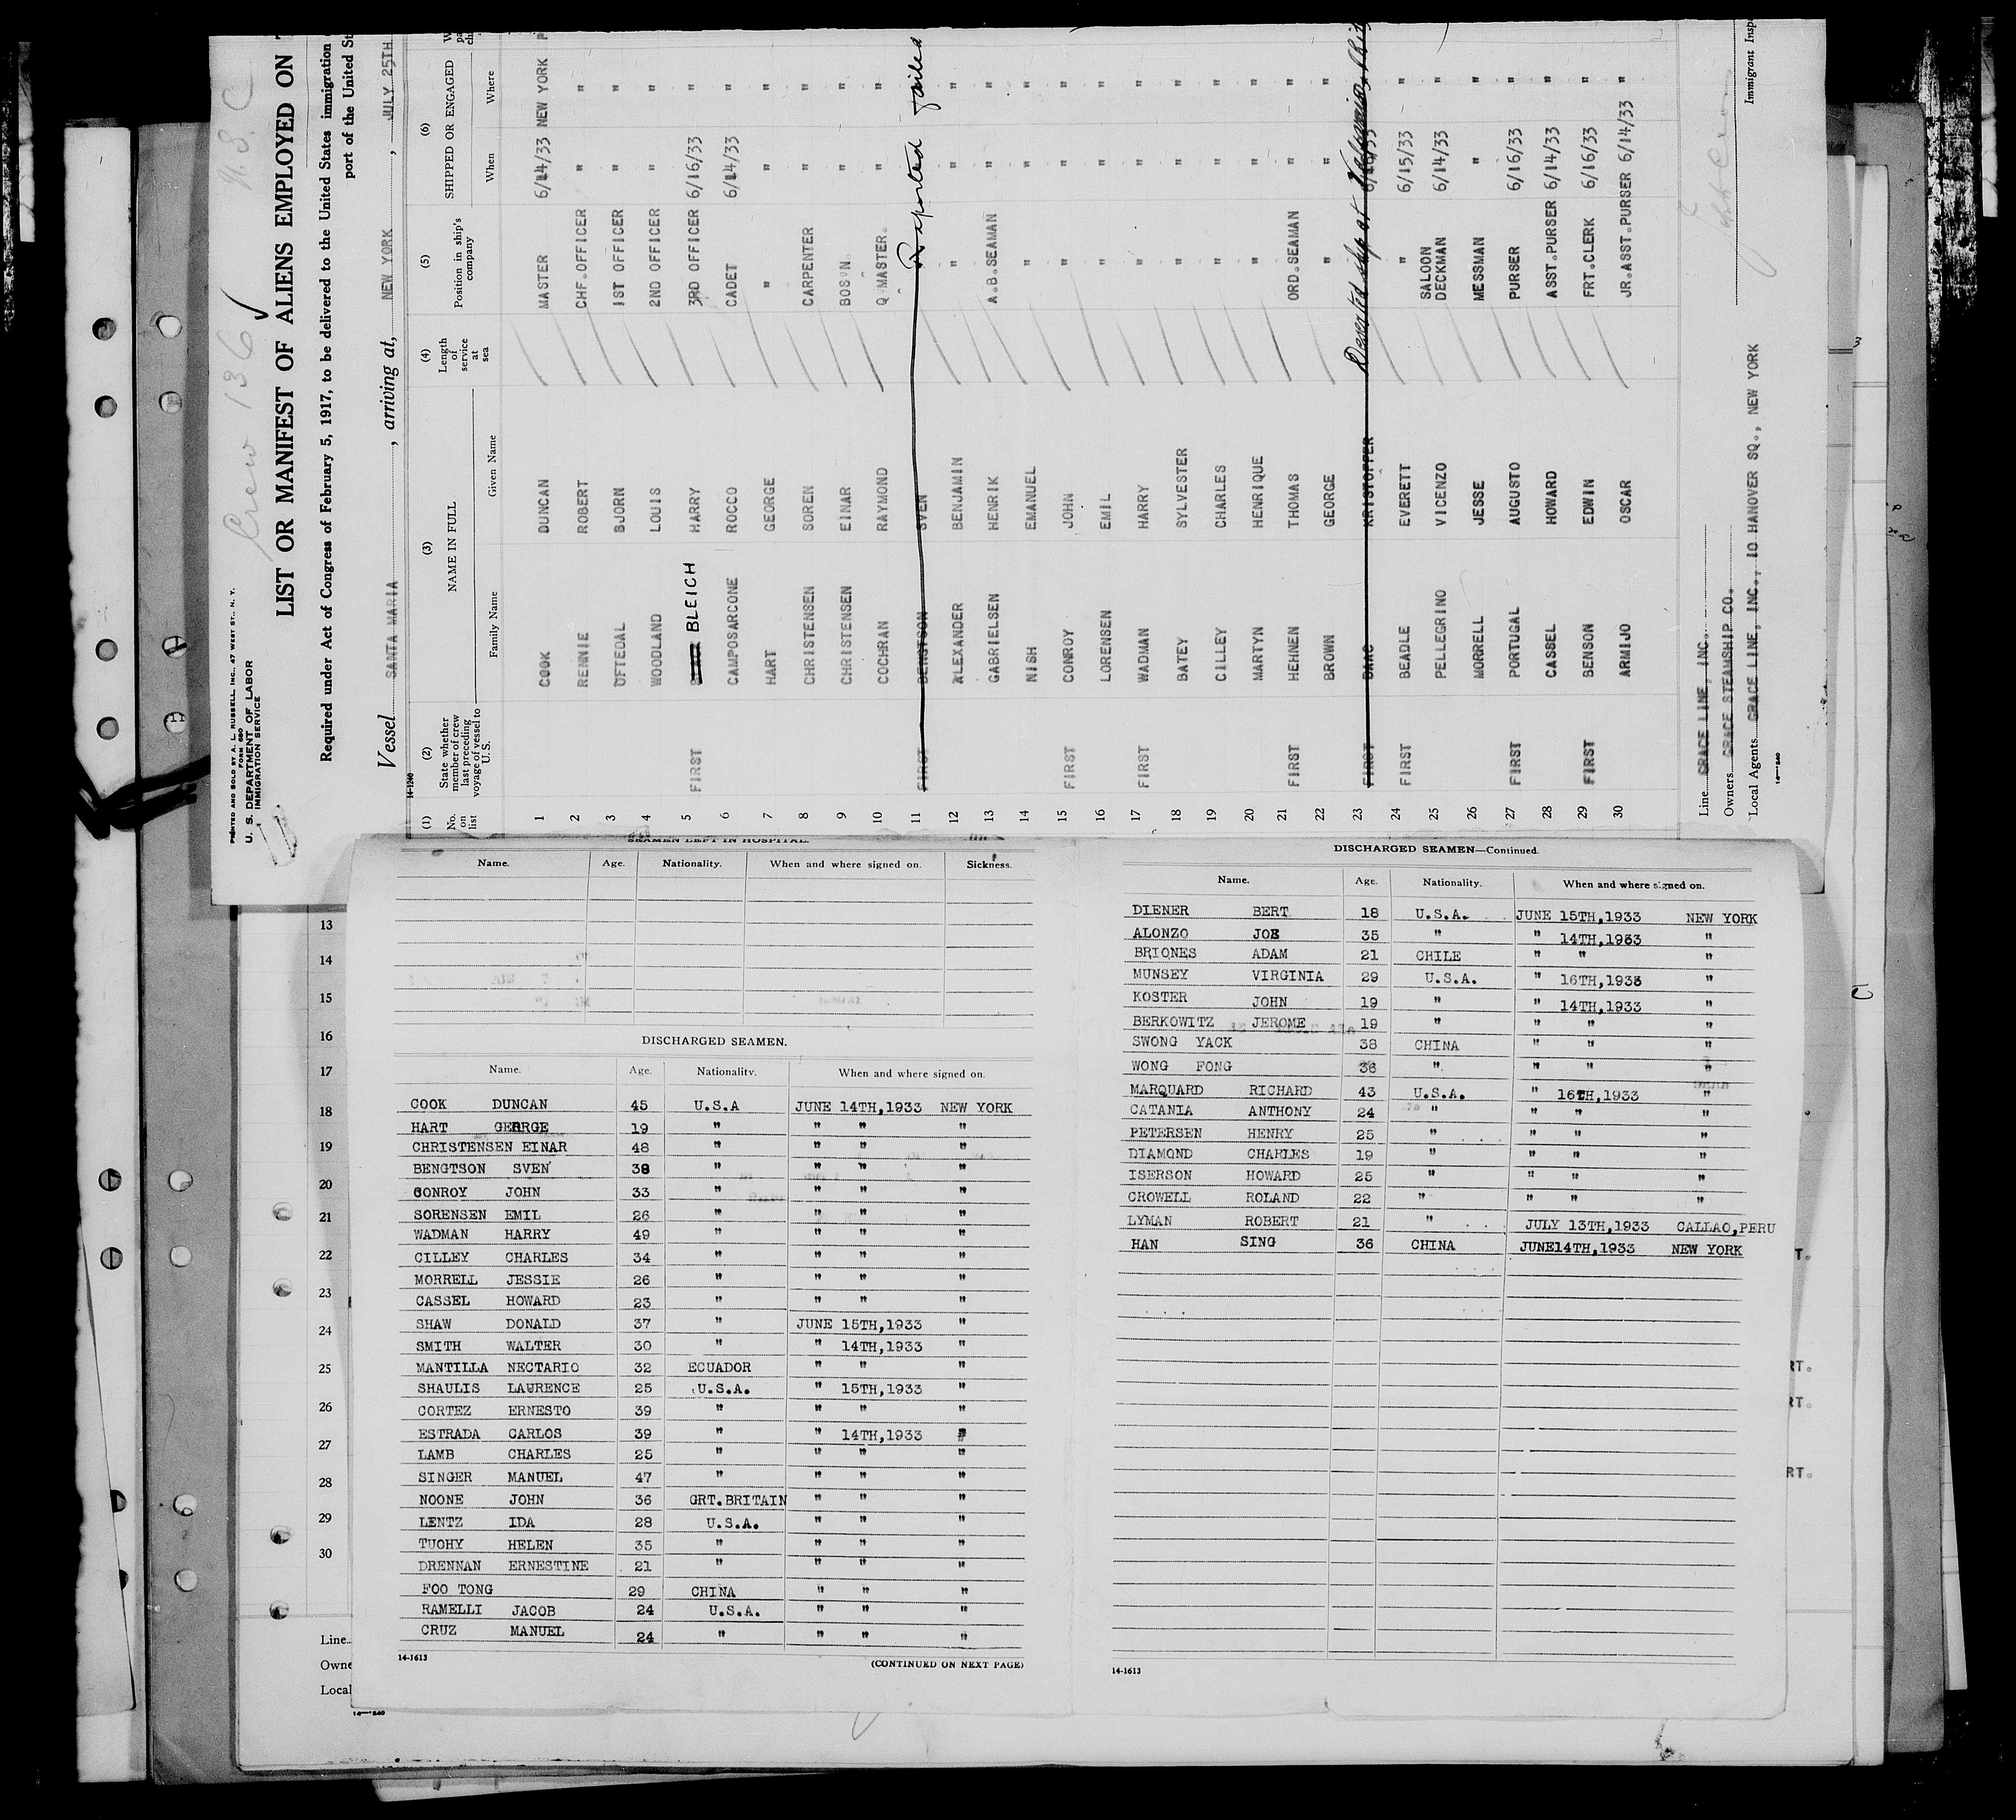 Crew 136 ✓ N.S.C
PRINTED AND SOLD BY A. L. RUSSELL, INC., 47 WEST ST., N. Y.
FORM 680
U. S. DEPARTMENT OF LABOR
IMMIGRATION SERVICE
LIST OR MANIFEST OF ALIENS EMPLOYED ON
Required under Act of Congress of February 5, 1917, to be delivered to the United States immigration
port of the United St
Vessel SANTA MARIA, arriving at, NEW YORK, JULY 25TH
14-1240
(1) (2) (3) (4) (5) (6)
No. on list State whether member of crew last preceding voyage of vessel to U. S. NAME IN FULL Length of service at sea Position in ship's company SHIPPED OR ENGAGED
Family Name Given Name When Where
1 COOK DUNCAN MASTER 6/14/33 NEW YORK
2 RENNIE ROBERT CHF.OFFICER " "
3 UFTEDAL BJORN 1ST OFFICER " "
4 WOODLAND LOUIS 2ND OFFICER " "
5 FIRST BLEICH HARRY 3RD OFFICER 6/16/33 "
6 CAMPOSARCONE ROCCO CADET 6/14/33 "
7 HART GEORGE " " "
8 CHRISTENSEN SOREN CARPENTER " "
9 CHRISTENSEN EINAR BOS'N. " "
10 COCHRAN RAYMOND Q.MASTER. " "
11 FIRST BENGTSON SVEN Reported failed
12 ALEXANDER BENJAMIN " " "
13 GABRIELSEN HENRIK A.B.SEAMAN " "
14 NISH EMANUEL " " "
15 FIRST CONROY JOHN " " "
16 LORENSEN EMIL " " "
17 FIRST WADMAN HARRY " " "
18 BATEY SYLVESTER " " "
19 CILLEY CHARLES " " "
20 MARTYN HENRIQUE " " "
21 FIRST HEHNEN THOMAS ORD.SEAMAN " "
22 BROWN GEORGE " " "
23 FIRST DAAC KRISTOFFER Deserted ship at Valparaiso, Chile
24 FIRST BEADLE EVERETT " 6/15/33 "
25 PELLEGRINO VICENZO SALOON DECKMAN 6/14/33 "
26 MORRELL JESSE MESSMAN " "
27 FIRST PORTUGAL AUGUSTO PURSER 6/16/33 "
28 CASSEL HOWARD ASST.PURSER 6/14/33 "
29 FIRST BENSON EDWIN FRT.CLERK 6/16/33 "
30 ARMIJO OSCAR JR.ASST.PURSER 6/14/33 "
Line GRACE LINE, INC.
Owners GRACE STEAMSHIP CO.
Local Agents GRACE LINE, INC., 10 HANOVER SQ., NEW YORK
Immigrant Insp
SEAMEN LEFT IN HOSPITAL.
Name. Age. Nationality. When and where signed on. Sickness.
DISCHARGED SEAMEN.
Name. Age. Nationality. When and where signed on.
COOK DUNCAN 45 U.S.A JUNE 14TH,1933 NEW YORK
HART GEORGE 19 " " " "
CHRISTENSEN EINAR 48 " " " "
BENGTSON SVEN 38 " " " "
CONROY JOHN 33 " " " "
SORENSEN EMIL 26 " " " "
WADMAN HARRY 49 " " " "
CILLEY CHARLES 34 " " " "
MORRELL JESSIE 26 " " " "
CASSEL HOWARD 23 " " " "
SHAW DONALD 37 " JUNE 15TH,1933 "
SMITH WALTER 30 " " 14TH,1933 "
MANTILLA NECTARIO 32 ECUADOR " " "
SHAULIS LAWRENCE 25 U.S.A. " 15TH,1933 "
CORTEZ ERNESTO 39 " " " "
ESTRADA CARLOS 39 " " 14TH,1933 "
LAMB CHARLES 25 " " " "
SINGER MANUEL 47 " " " "
NOONE JOHN 36 GRT.BRITAIN " " "
LENTZ IDA 28 U.S.A. " " "
TUOHY HELEN 35 " " " "
DRENNAN ERNESTINE 21 " " " "
FOO TONG 29 CHINA " " "
RAMELLI JACOB 24 U.S.A. " " "
CRUZ MANUEL 24 " " " "
14-1613 (CONTINUED ON NEXT PAGE)
DISCHARGED SEAMEN—Continued.
Name. Age. Nationality. When and where signed on.
DIENER BERT 18 U.S.A. JUNE 15TH,1933 NEW YORK
ALONZO JOE 35 " " 14TH,1933 "
BRIONES ADAM 21 CHILE " " "
MUNSEY VIRGINIA 29 U.S.A. " 16TH,1933 "
KOSTER JOHN 19 " " 14TH,1933 "
BERKOWITZ JEROME 19 " " " "
SWONG YACK 38 CHINA " " "
WONG FONG 36 " " " "
MARQUARD RICHARD 43 U.S.A. " 16TH,1933 "
CATANIA ANTHONY 24 " " " "
PETERSEN HENRY 25 " " " "
DIAMOND CHARLES 19 " " " "
ISERSON HOWARD 25 " " " "
CROWELL ROLAND 22 " " " "
LYMAN ROBERT 21 " JULY 13TH,1933 CALLAO,PERU
HAN SING 36 CHINA JUNE14TH,1933 NEW YORK
14-1613
13
14
15
16
17
18
19
20
21
22
23
24
25
26
27
28
29
30
Line
Owne
Local
T.
RT.
RT.
RT.